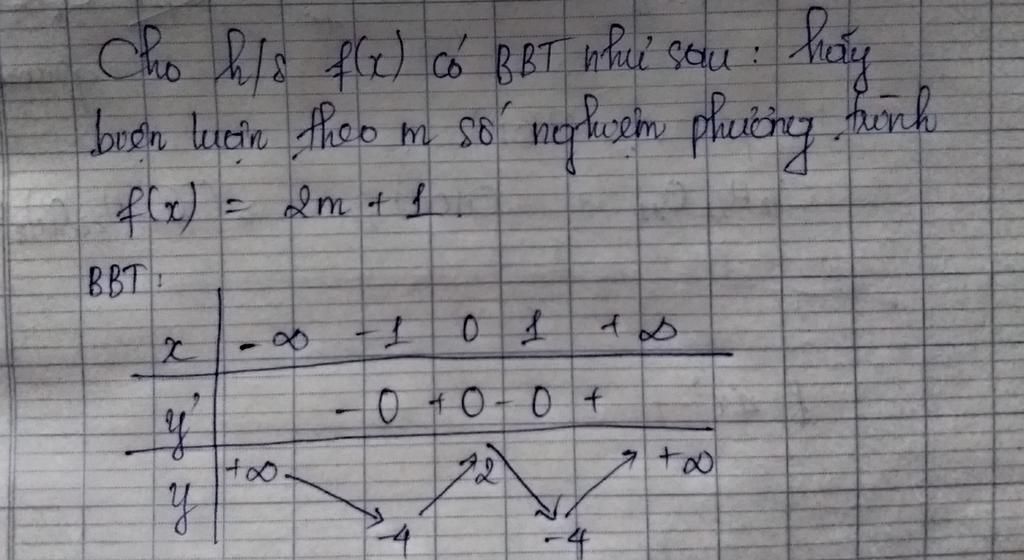 Cho h/s f(x) có BBT như sau : hãy
biện luận theo m số nghiệm phương trình
f(x) = 2m + 1.
BBT :
x - ∞ -1 0 1 + ∞
y' - 0 + 0 - 0 +
+∞ 2 + ∞
y
-4 -4